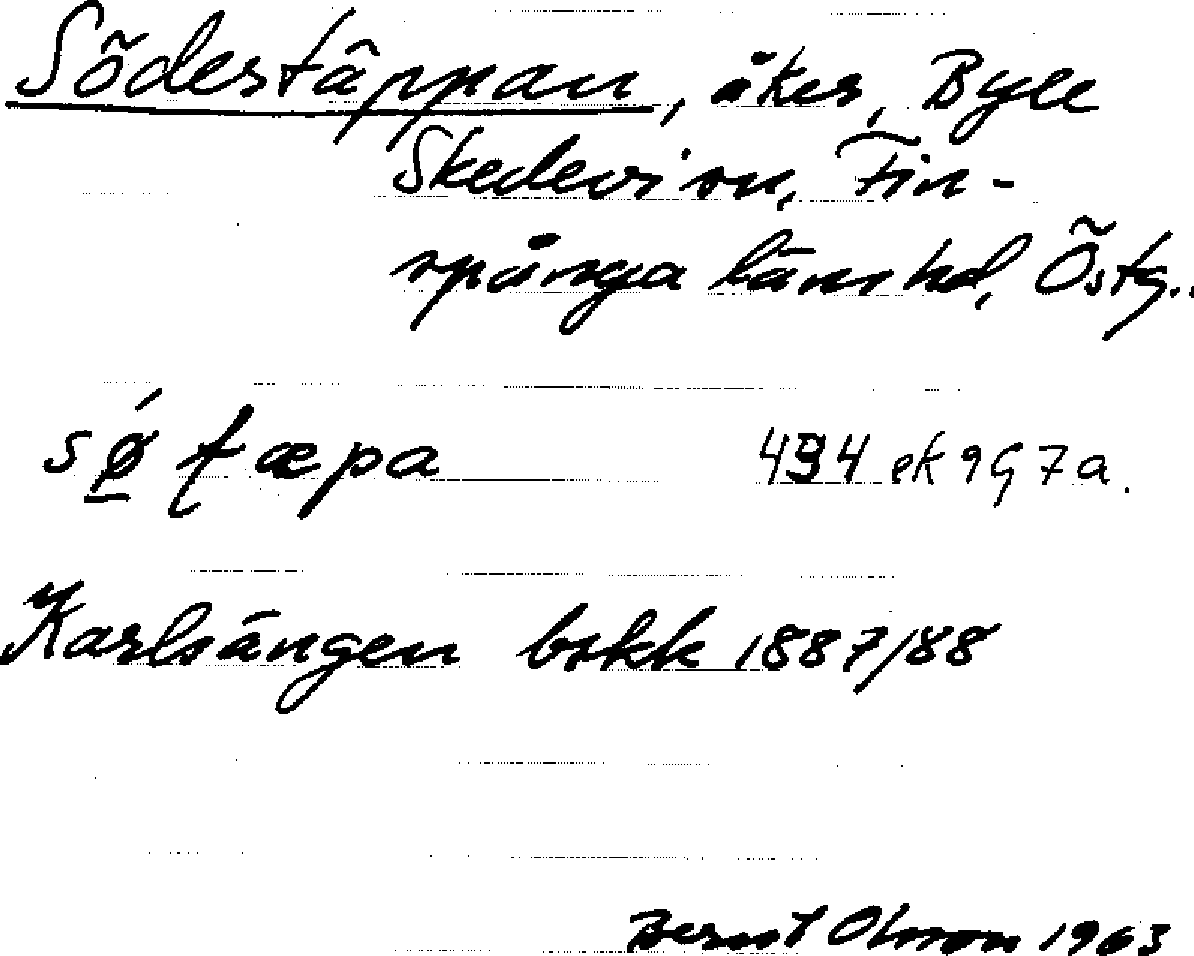 Södertäppan, åker, Byle
Skedevi sn, Fin-
spånga länshd, Östg.
sǿ̱ tæpa 494 ek 9G7a.
Karlsängen bskk 1887/88
Bernt Olsson 1963